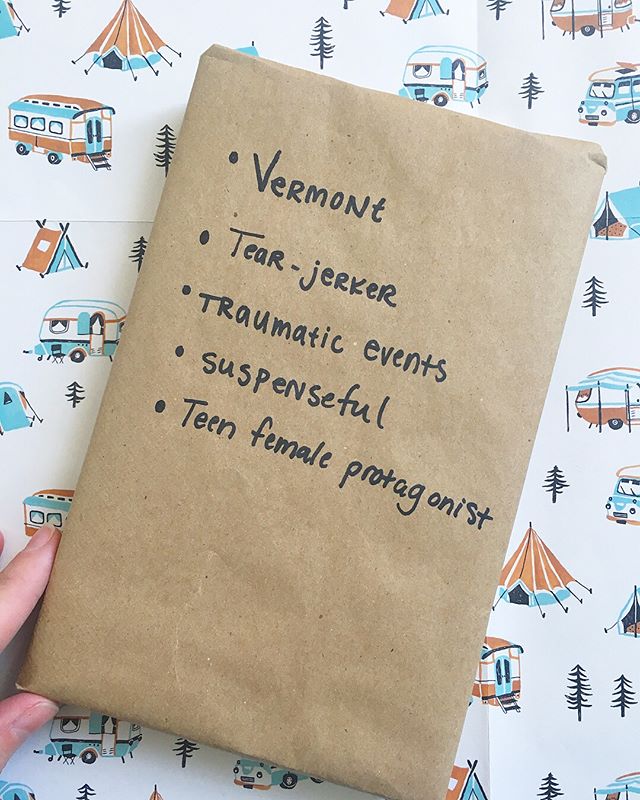 • Vermont
• Tear-jerker
• Traumatic events
• suspenseful
• Teen female protagonist